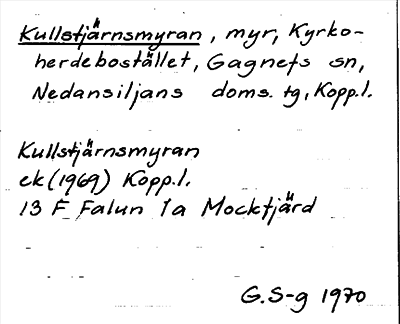 Kullstjärnsmyran, myr, Kyrko-
herdebostället, Gagnefs sn,
Nedansiljans doms. tg, Kopp.l.
Kullstjärnsmyran
ek (1969) Kopp.l.
13 F Falun 1a Mocktjärd
G.S-g 1970